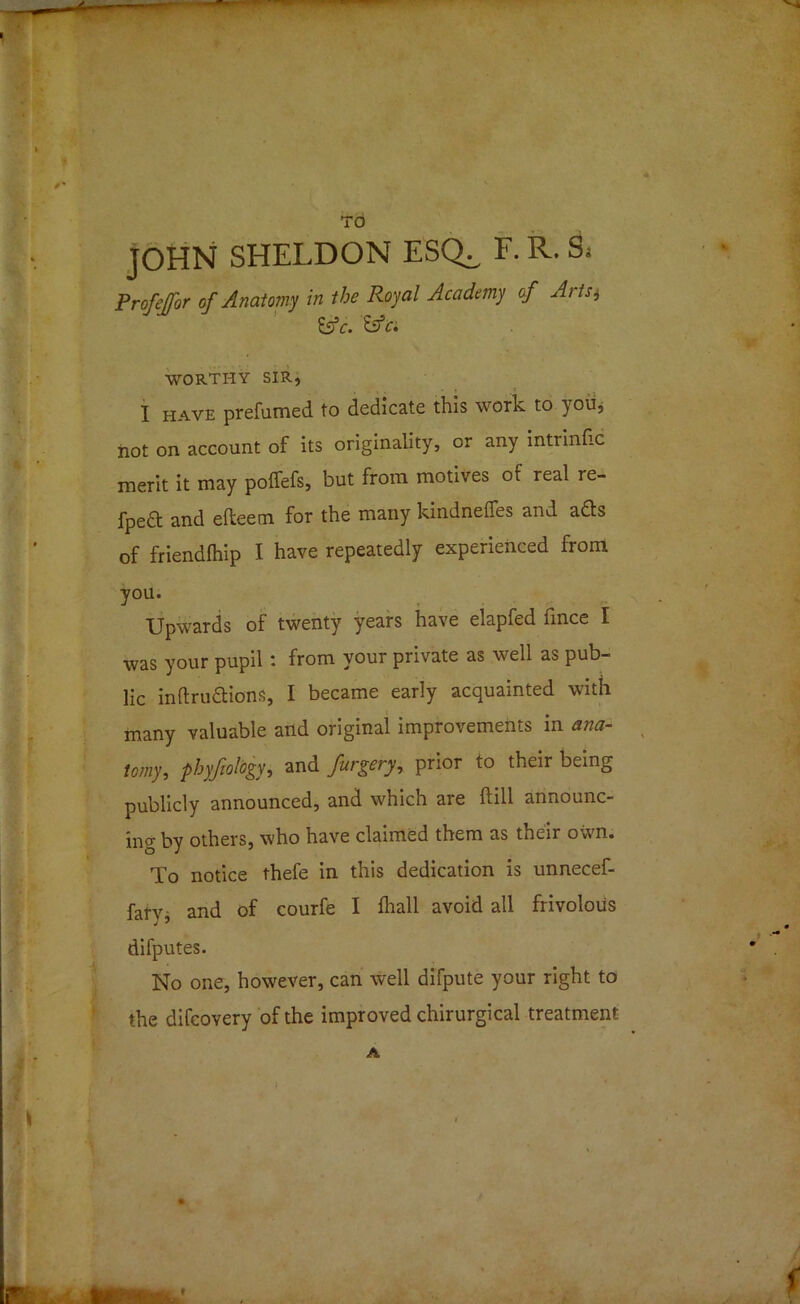 TO
JOHN SHELDON ESQ. F. R. S.
Profeſſor of Anatomy in the Royal Academy of Arts,
&c. &c.
WORTHY SIR,
I HAVE preſumed to dedicate this work to you,
not on account of its originality, or any intrinſic
merit it may poſſeſs, but from motives of real re-
ſpect and eſteem for the many kindneſſes and acts
of friendſhip I have repeatedly experienced from
you.
Upwards of twenty years have elapſed ſince I
was your pupil : from your private as well as pub-
lic inſtructions, I became early acquainted with
many valuable and original improvements in ana-
tomy, phyſiology, and ſurgery, prior to their being
publicly announced, and which are ſtill announc-
ing by others, who have claimed them as their own.
To notice theſe in this dedication is unneceſ-
ſary, and of courſe I ſhall avoid all frivolous
diſputes.
No one, however, can well diſpute your right to
the diſcovery of the improved chirurgical treatment
A